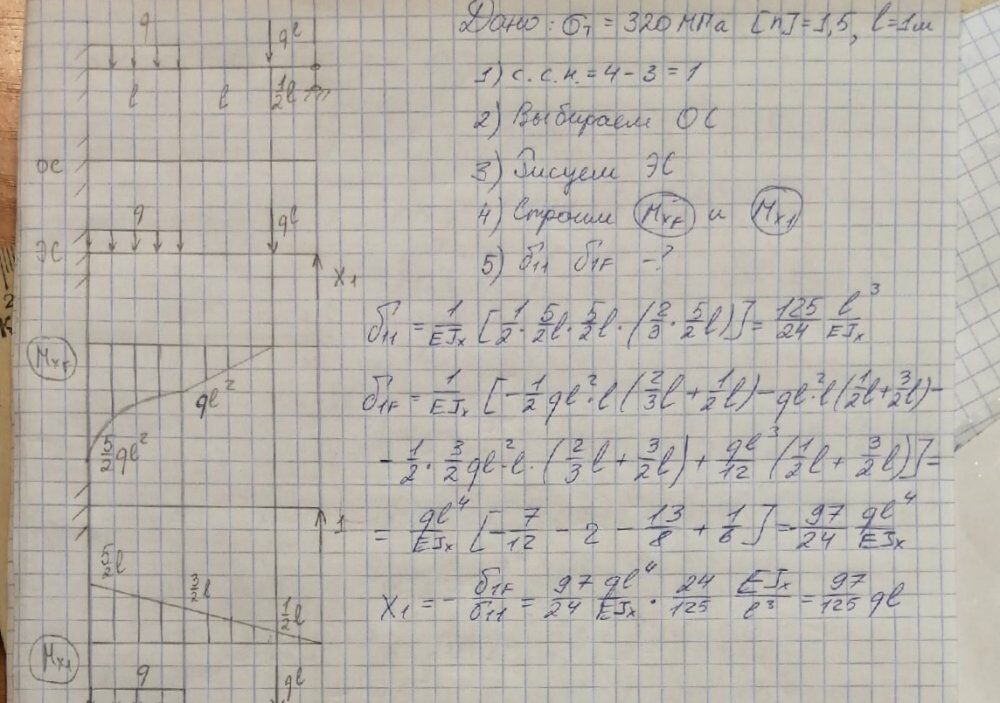 Дано: σт = 320 МПа [n]=1,5, l=1м
1) с.с.н. = 4 - 3 = 1
2) Выбираем ОС
3) Рисуем ЭС
4) Строим MxF и Mx1
5) δ11 δ1F - ?
δ11 = 1/EJx [1/2 · 5/2 l · 5/2 l · (2/3 · 5/2 l)] = 125/24 l³/EJx
δ1F = 1/EJx [-1/2 ql² · l (2/3 l + 1/2 l) - ql² · l (1/2 l + 3/2 l) -
- 1/2 · 3/2 ql² · l · (2/3 l + 3/2 l) + ql³/12 (1/2 l + 3/2 l)] =
= ql⁴/EJx [-7/12 - 2 - 13/8 + 1/6] = -97/24 ql⁴/EJx
X1 = - δ1F/δ11 = 97/24 ql⁴/EJx · 24/125 EJx/l³ = 97/125 ql
q
ql
l
l
1/2 l
ОС
q
ql
ЭС
X1
MxF
ql²
5/2 ql²
1
5/2 l
3/2 l
1/2 l
Mx1
q
ql